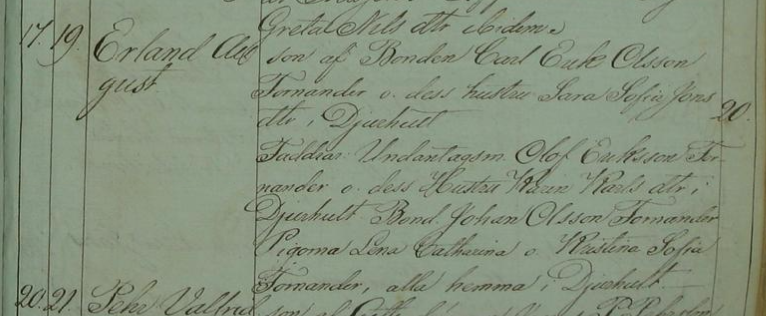 Greta Nils dtr ibidem.
17. 19. Erland Au
gust
son af Bonden Carl Erik Olsson
Fornander o. dess hustru Sara Sofia Jons
dtr i Djurhult 20.
Faddrar: Undantagsm. Olof Eriksson For-
nander o. dess Hustru Karin Karls dtr i
Djurhult Bond. Johan Olsson Fornander
Pigorna Lena Catharina o. Kristina Sofia
Fornander, alla hemma i Djurhult
20. 21. Pehr Valfrid son af